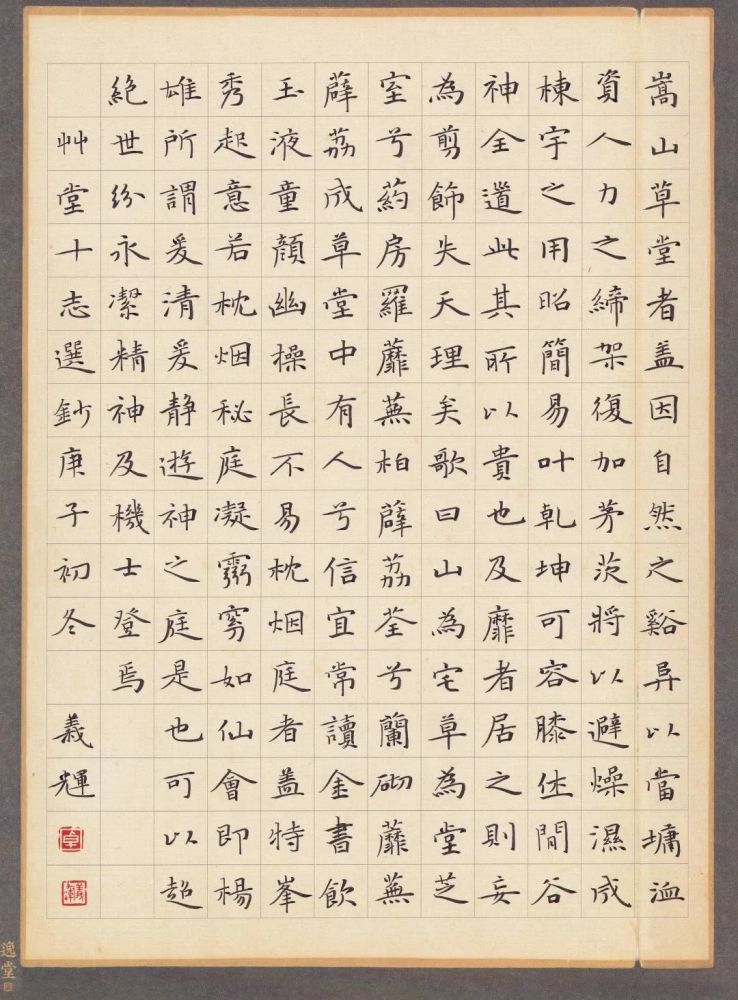 嵩山草堂者盖因自然之谿㠯以當墉洫
資人力之締架復加茅茨將以避燥濕成
棟宇之用昭簡易叶乹坤可容膝休閒谷
神全道此其所以貴也及靡者居之則妄
為剪飾失天理矣歌曰山為宅草為堂芝
室兮葯房羅蘼蕪柏薜荔荃兮蘭砌蘼蕪
薜荔成草堂中有人兮信宜常讀金書飲
玉液童顔幽操長不易枕烟庭者盖特峯
秀起意若枕烟秘庭凝靈窅如仙會即楊
雄所謂爰清爰静遊神之庭是也可以超
絶世紛永潔精神及機士登焉
艸堂十志選鈔庚子初冬 義輝
逸堂